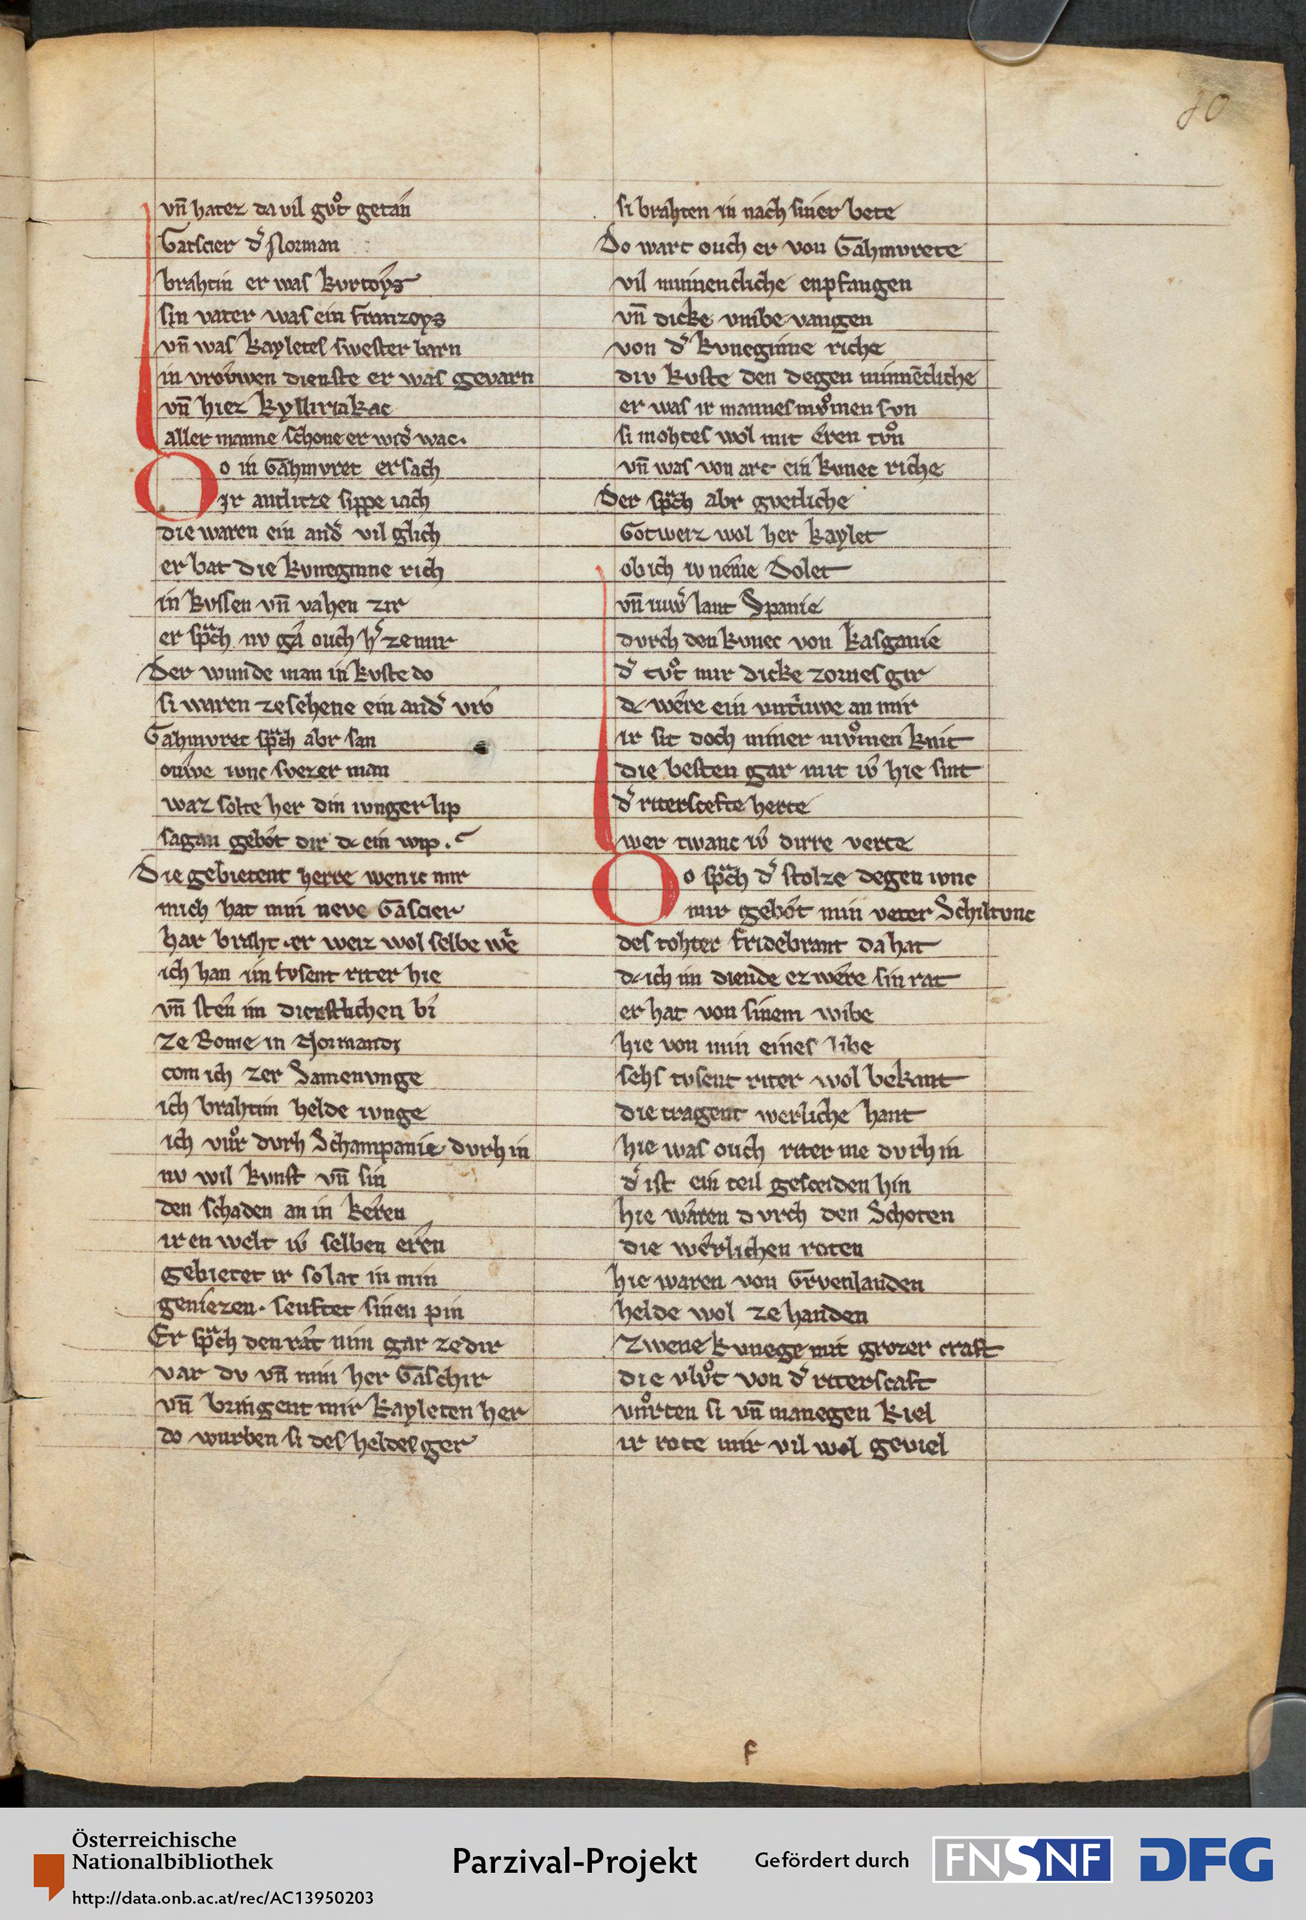 40
vn̄ hatez da vil gůt getan
Gatscier d' Norman
brahtin er was kvrtoys
sin vater was ein franzoys
vn̄ was kayletes swester barn
in vrowen dienste er was gevarn
vn̄ hiez kyllirtakac
aller manne schone er wid' wac.
Do in Gahmvret ersach
Ir antlitze sippe iach
die waren ein and' vil glich
er bat die kvneginne rich
in kvssen vn̄ vahen zir
er sprach nv ga ouch h' ze mir
Der wunde man in kvste do
si waren ze sehene ein and' vro
Gahmvret sprach abr san
ouwe ivnc svezer man
waz solte her din ivnger lip
sagan gebot dir dc ein wip.
Die gebietent herre wenic mir
mich hat min neve Gascier
har braht er weiz wol selbe wie
ich han im tvsent riter hie
vn̄ sten im dienstlichen bi
ze Rome in Normandi
com ich zer Samenvnge
ich brahtim helde ivnge
ich vůr dvrh Schampanie dvrh in
nv wil kvnst vn̄ sin
den schaden an in keren
ir en welt iw selben eren
gebietet ir so lat in min
geniezen. senftet sinen pin
Er sprach den rat nim gar ze dir
var dv vn̄ min her Gaschir
vn̄ bringent mir kayleten her
do wurben si des heldes ger
si brahten in nach siner bete
Do wart ouch er von Gahmvrete
vil minnencliche enpfangen
vn̄ dicke vmbe vangen
von d' kvneginne riche
div kvste den degen minnēcliche
er was ir mannes mv̊men svn
si mohtes wol mit eren tv̊n
vn̄ was von art ein kvnec riche
Der sprach abr gvetliche
Gotweiz wol her kaylet
ob ich iv neme Dolet
vn̄ iuw' lant Spanie
dvrch den kvnec von kasganie
d' tv̊t mir dicke zornes gir
dc were ein vntriuwe an mir
ir sit doch miner mv̊men kint
die besten gar mit iw hie sint
d' riterscefte herte
wer twanc iw dirre verte
Do sprach d' stolze degen ivnc
mir gebot min veter Schiltvnc
des tohter fridebrant da hat
dc ich im diende ez were sin rat
er hat von sinem wibe
hie von min eines libe
sehs tvsent riter wol bekant
die tragent werliche hant
hie was ouch riter me dvrh in
d' ist ein teil gesceiden hin
hie waren dvrch den Schoten
die werlichen roten
hie waren von Grvenlanden
helde wol ze handen
zwene kvnege mit grozer craft
die vlv̊t von d' riterscaft
vůrten si vn̄ manegen kiel
ir rote mir vil wol geviel
F
Österreichische
Nationalbibliothek
http://data.onb.ac.at/rec/AC13950203
Parzival-Projekt
Gefördert durch
FNSNF
DFG